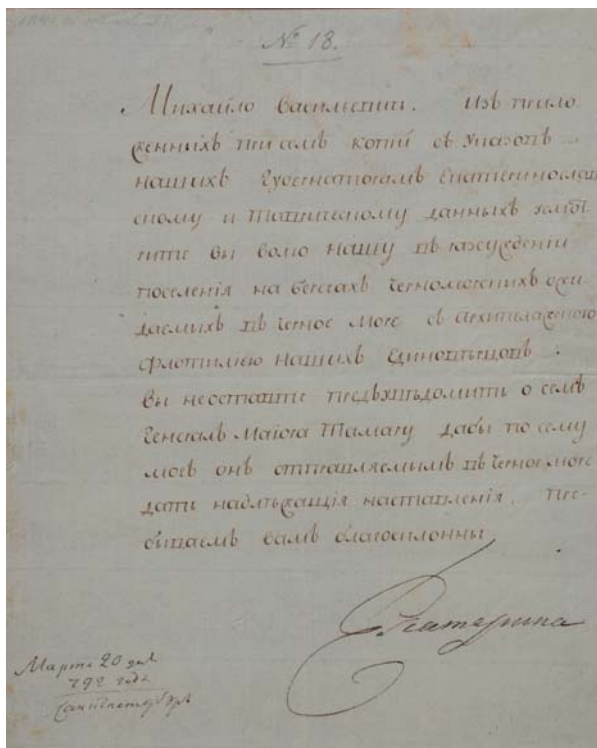 № 18.
Михайло Васильевич. Изъ прило
женнихъ при семъ копий съ Указовъ
нашихъ Губернаторамъ Екатеринослав
скому и Таврическому даннихъ
вы волю нашу въ разсуждении
поселения на берегахъ Черноморскихъ ожи
даемихъ въ Черное море съ Архипелажскою
флотилиею нашихъ единоверцовъ.
Вы неоставте предъувѣдомить о семъ
Генералъ Маиора Тамару дабы по сему
могъ онъ отправляемимъ въ Черное море
дать надлѣжащія наставления. Пре
бываемъ вамъ благосклонны
Екатерина
Марта 20 дня
792 года
Санктпетербургъ